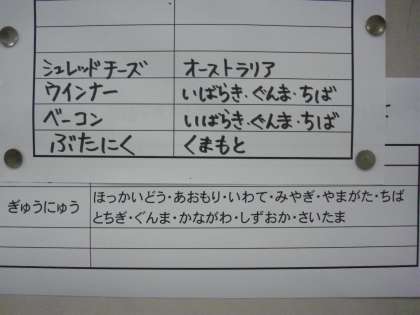 シュレッドチーズ オーストラリア
ウインナー いばらき・ぐんま・ちば
ベーコン いばらき・ぐんま・ちば
ぶたにく くまもと
ぎゅうにゅう ほっかいどう・あおもり・いわて・みやぎ・やまがた・ちば
とちぎ・ぐんま・かながわ・しずおか・さいたま